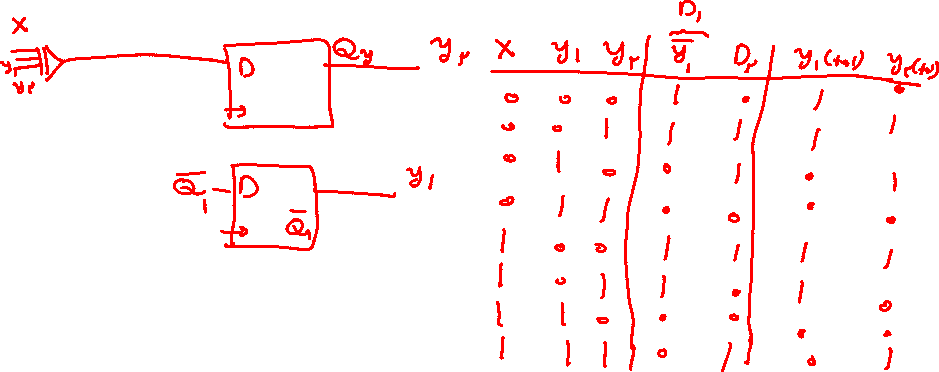 X
y₁
y۲
D Q۲ y۲
Q̅₁ D y₁
Q̅₁
D₁
X y₁ y۲ y̅₁ D۲ y₁(t+1) y۲(t+1)
0 0 0 1 0 1 0
0 0 1 1 1 1 1
0 1 0 0 1 0 1
0 1 1 0 0 0 0
1 0 0 1 1 1 1
1 0 1 1 0 1 0
1 1 0 0 0 0 0
1 1 1 0 1 0 1